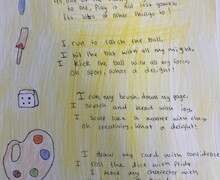 to me, Play is not just games
Its lots of other things to!
I run to catch the ball.
I hit the bat with all my might,
I kick the ball with all my force
Oh sport, what a delight!
I run my brush down my page,
I sketch and bead with joy,
I sculp like a master with clay
Oh creativity, what a delight!
I draw my card with confidence
I roll the dice with Pride
I move my character with